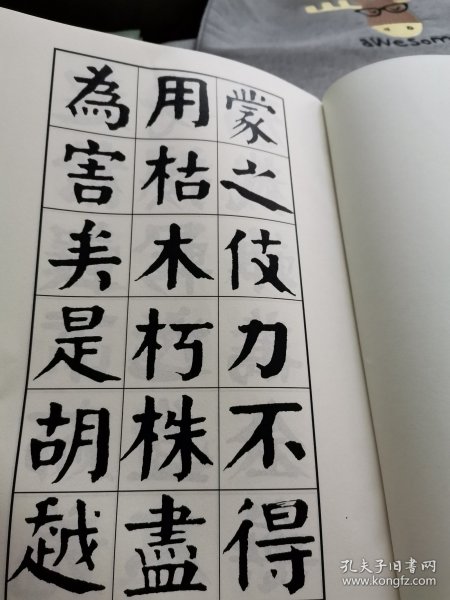 蒙之伎力不得
用枯木朽株盡
為害矣是胡越
awesom
孔夫子旧书网
www.kongfz.com